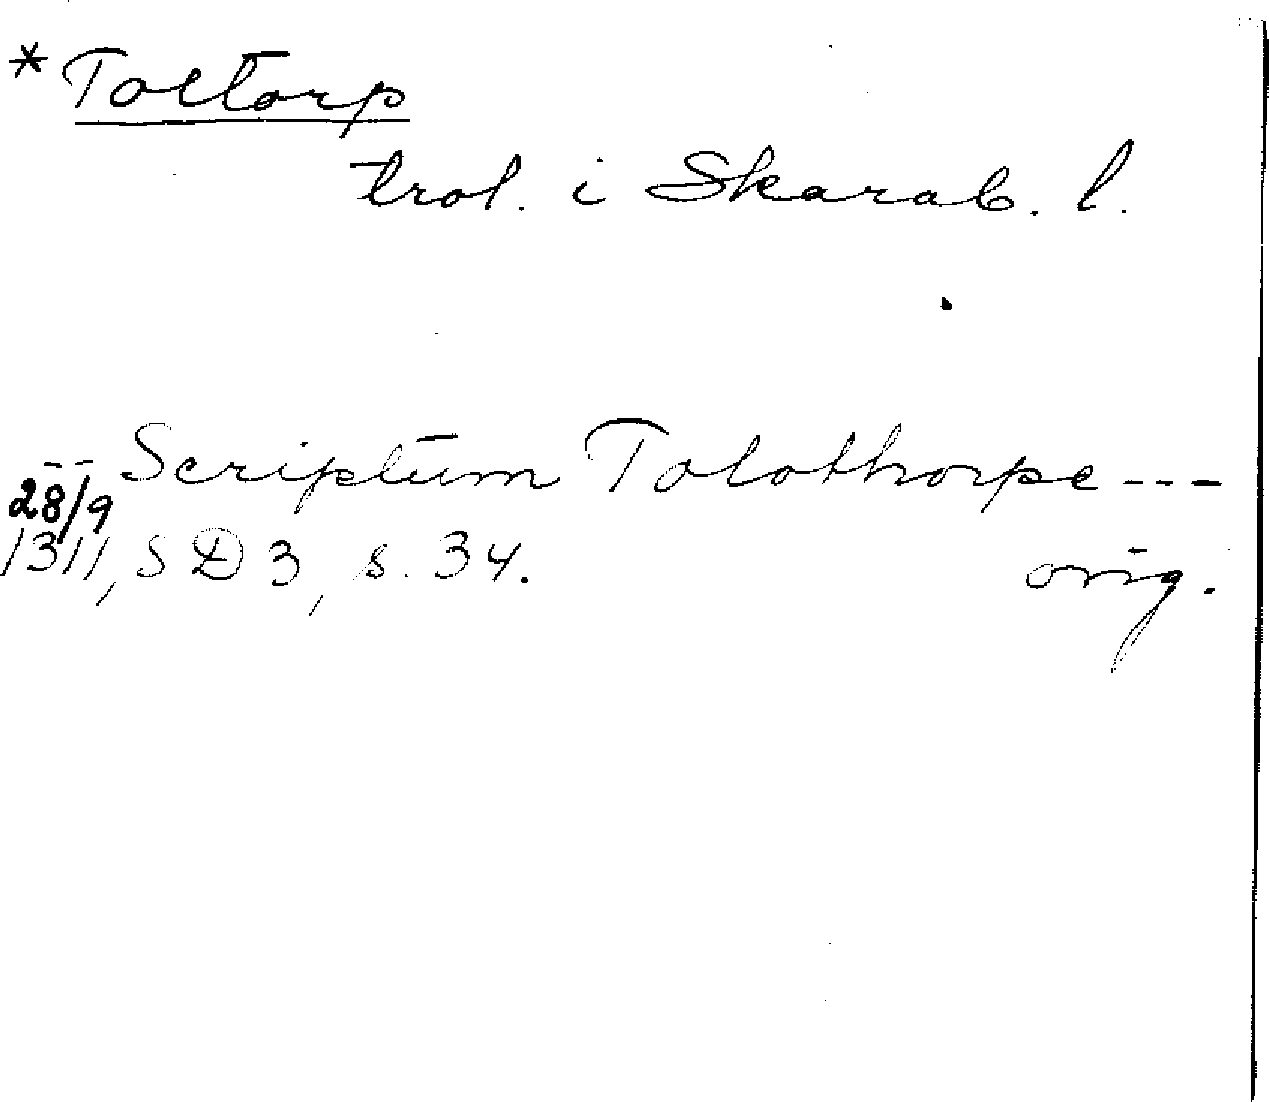 *Toltorp
trol. i Skarab. l.
-- Scriptum Tolothorpe ---
28/9
1311, SD 3, s. 34. orig.